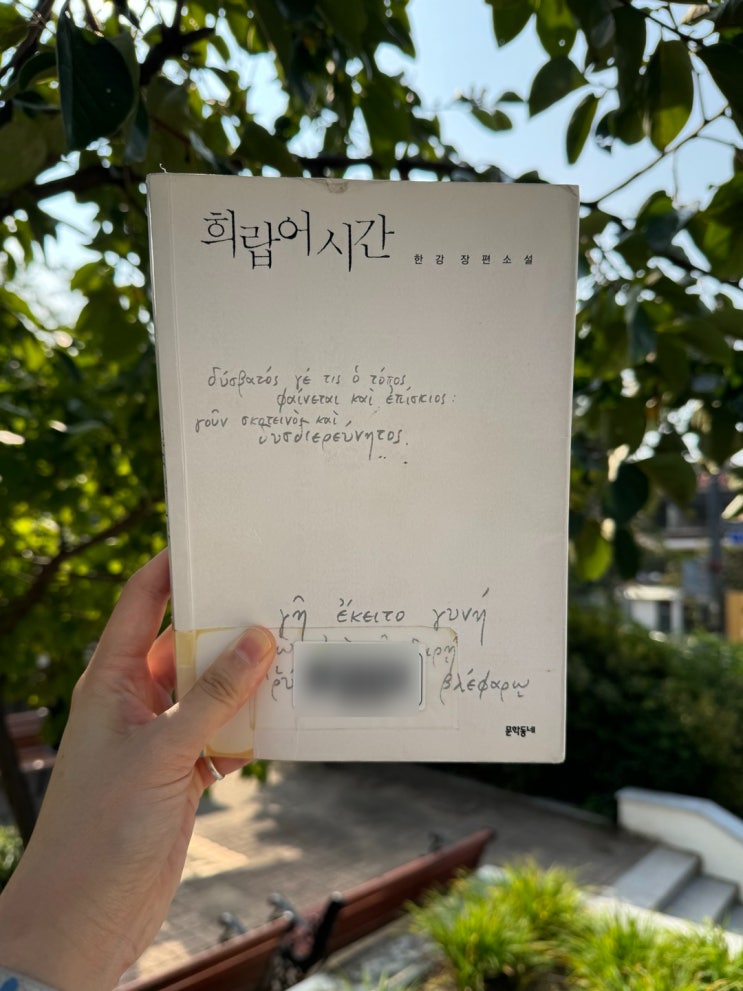 희랍어 시간
한강 장편소설
δύσβατός γέ τις ὁ τόπος
φαίνεται καὶ ἐπίσκιος:
γοῦν σκοτεινὸς καὶ
γῆ ἔκειτο γυνή
βλέφαρῳ
문학동네